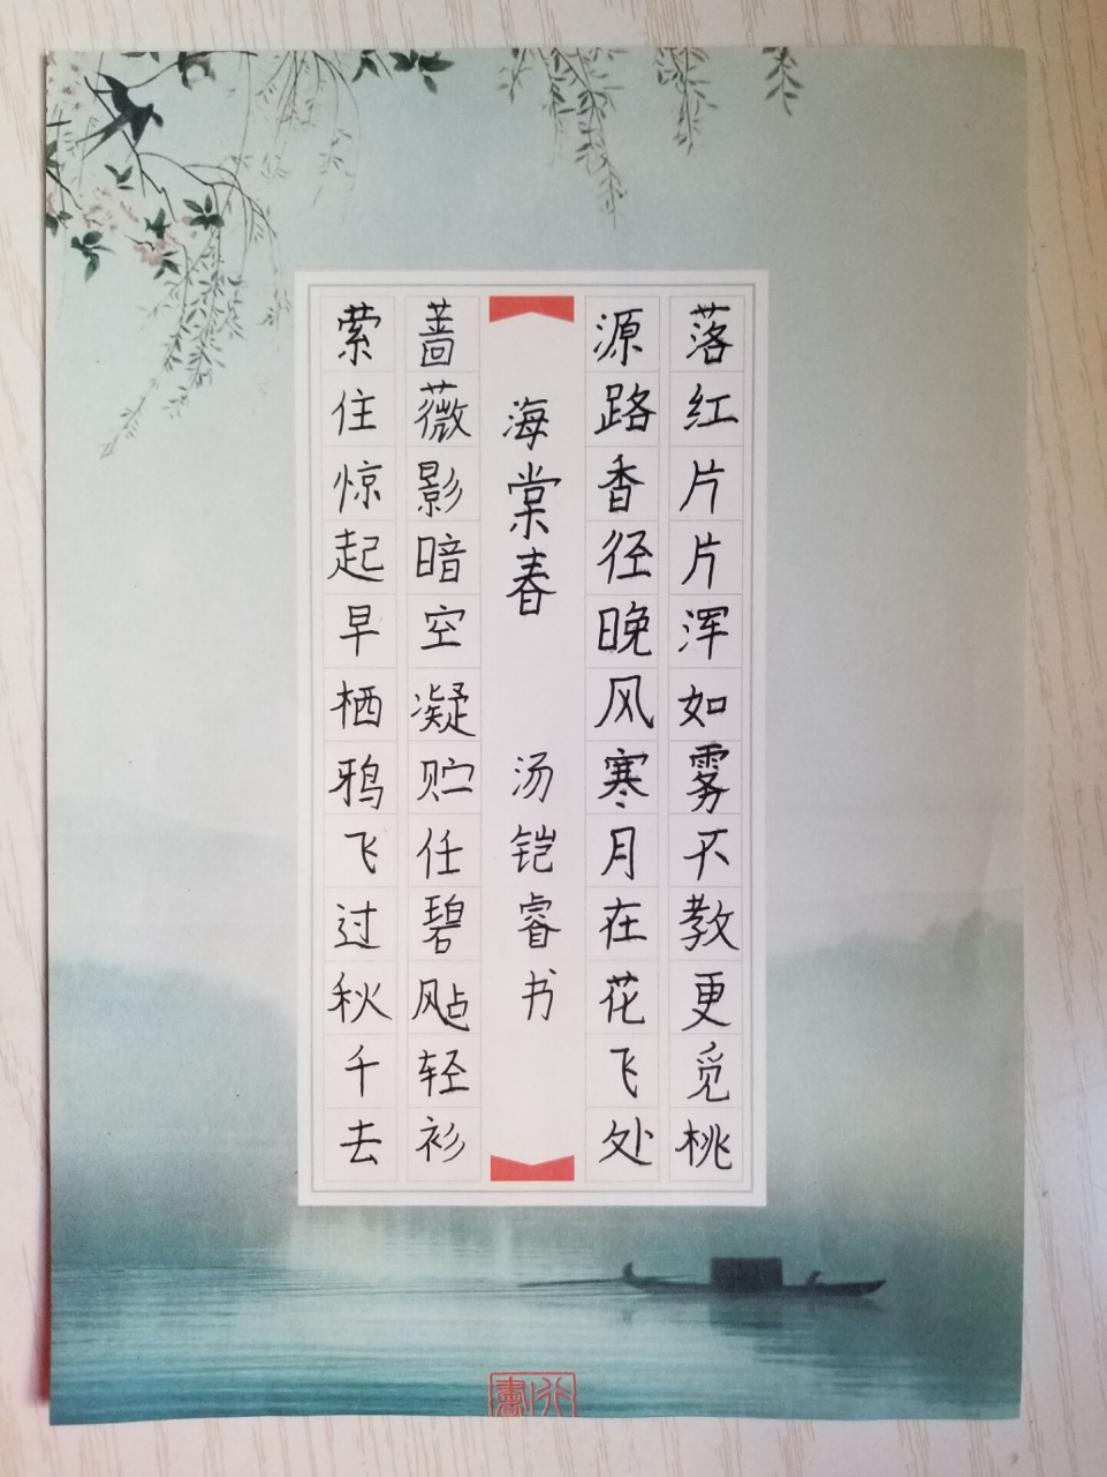 落红片片浑如雾不教更觅桃
源路香径晚风寒月在花飞处
海棠春 汤铠睿书
蔷薇影暗空凝贮任碧飐轻衫
萦住惊起早栖鸦飞过秋千去